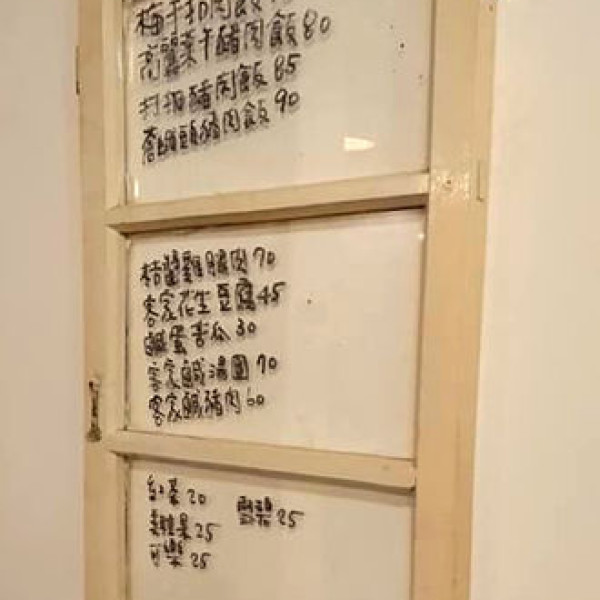 梅干扣肉飯
高麗菜干豬肉飯 80
打拋豬肉飯 85
蒼蠅頭豬肉飯 90
桔醬雞腿肉 70
客家花生豆腐 45
鹹蛋苦瓜 30
客家鹹湯圓 70
客家鹹豬肉 60
紅茶 20 雪碧 25
蘋果 25
可樂 25